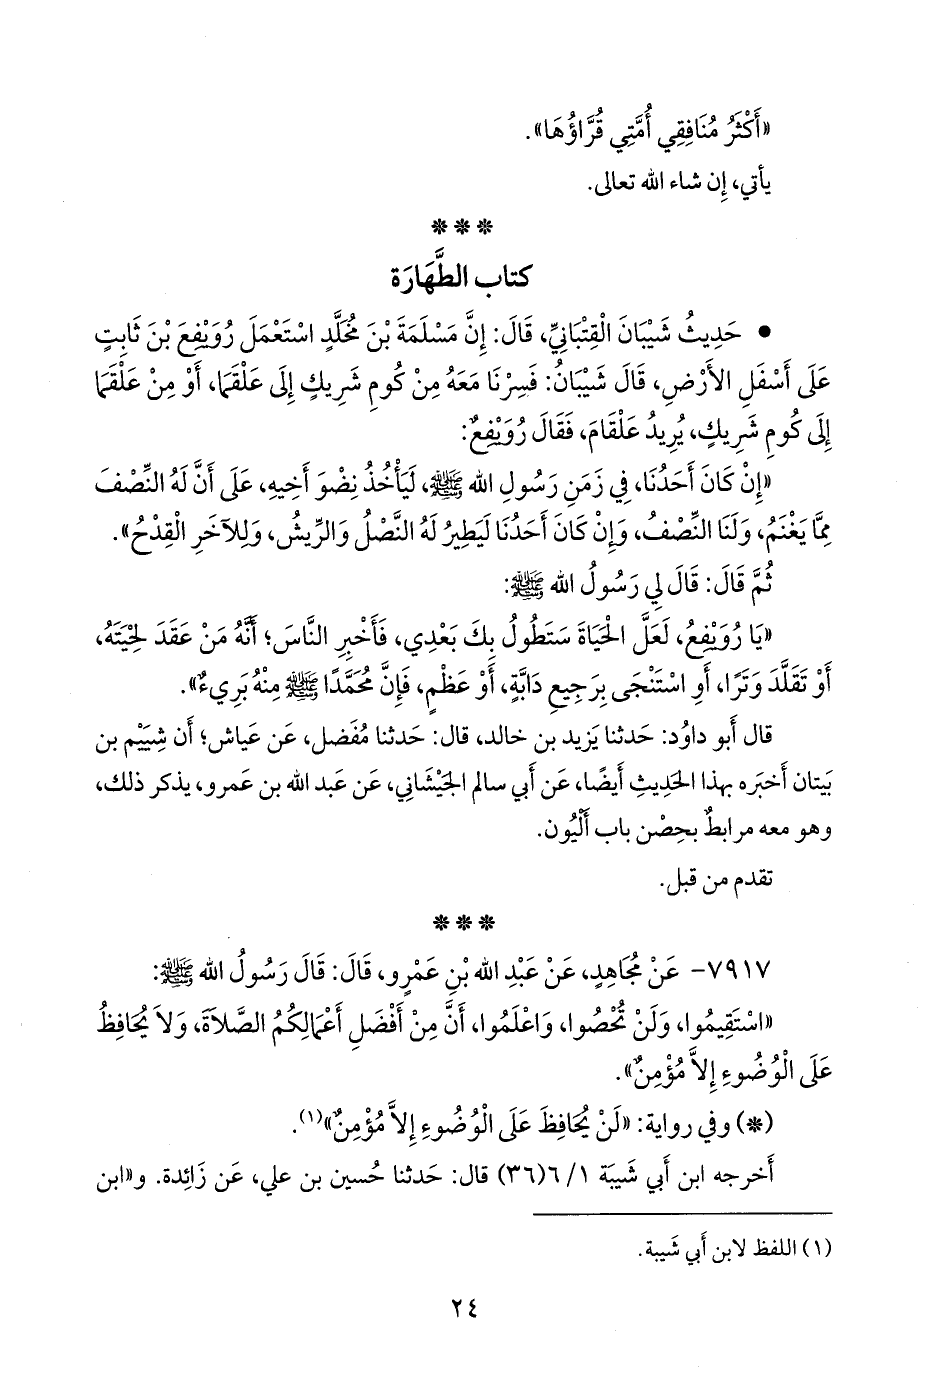 «أَكْثَرُ مُنَافِقِي أُمَّتِي قُرَّاؤُهَا».
يأتي، إِن شاء الله تعالى.
***
كتاب الطَّهَارَة
• حَدِيثُ شَيْبَانَ الْقِتْبَانِيِّ، قَالَ: إِنَّ مَسْلَمَةَ بْنَ مُخَلَّدٍ اسْتَعْمَلَ رُوَيْفِعَ بْنَ ثَابِتٍ
عَلَى أَسْفَلِ الأَرْضِ، قَالَ شَيْبَانُ: فَسِرْنَا مَعَهُ مِنْ كُومِ شَرِيكٍ إِلَى عَلْقَمَا، أَوْ مِنْ عَلْقَمَا
إِلَى كُومِ شَرِيكٍ، يُرِيدُ عَلْقَامَ، فَقَالَ رُوَيْفِعٌ:
«إِنْ كَانَ أَحَدُنَا، فِي زَمَنِ رَسُولِ الله ﷺ، لَيَأْخُذُ نِضْوَ أَخِيهِ، عَلَى أَنَّ لَهُ النِّصْفَ
مِمَّا يَغْنَمُ، وَلَنَا النِّصْفُ، وَإِنْ كَانَ أَحَدُنَا لَيَطِيرُ لَهُ النَّصْلُ وَالرِّيشُ، وَلِلآخَرِ الْقِدْحُ».
ثُمَّ قَالَ: قَالَ لِي رَسُولُ الله ﷺ:
«يَا رُوَيْفِعُ، لَعَلَّ الْحَيَاةَ سَتَطُولُ بِكَ بَعْدِي، فَأَخْبِرِ النَّاسَ؛ أَنَّهُ مَنْ عَقَدَ لِحْيَتَهُ،
أَوْ تَقَلَّدَ وَتَرًا، أَوِ اسْتَنْجَى بِرَجِيعِ دَابَّةٍ، أَوْ عَظْمٍ، فَإِنَّ مُحَمَّدًا ﷺ مِنْهُ بَرِيءٌ».
قال أَبو داوُد: حَدثنا يَزيد بن خالد، قال: حَدثنا مُفَضل، عَن عَياش؛ أَن شِيَيْم بن
بَيتان أَخبَره بهذا الحَديثِ أَيضًا، عَن أَبي سالم الجَيْشاني، عَن عَبد الله بن عَمرو، يذكر ذلك،
وهو معه مرابطٌ بحِصْن باب أَلْيُون.
تقدم من قبل.
***
٧٩١٧- عَنْ مُجَاهِدٍ، عَنْ عَبْدِ الله بْنِ عَمْرٍو، قَالَ: قَالَ رَسُولُ الله ﷺ:
«اسْتَقِيمُوا، وَلَنْ تُحْصُوا، وَاعْلَمُوا، أَنَّ مِنْ أَفْضَلِ أَعْمَالِكُمُ الصَّلاَةَ، وَلاَ يُحَافِظُ
عَلَى الْوُضُوءِ إِلاَّ مُؤْمِنٌ».
(*) وفي رواية: «لَنْ يُحَافِظَ عَلَى الْوُضُوءِ إِلاَّ مُؤْمِنٌ»(١).
أَخرجه ابن أَبي شَيبَة ١/ ٦(٣٦) قال: حَدثنا حُسين بن علي، عَن زَائِدة. و«ابن
(١) اللفظ لابن أَبي شَيبة.
٢٤